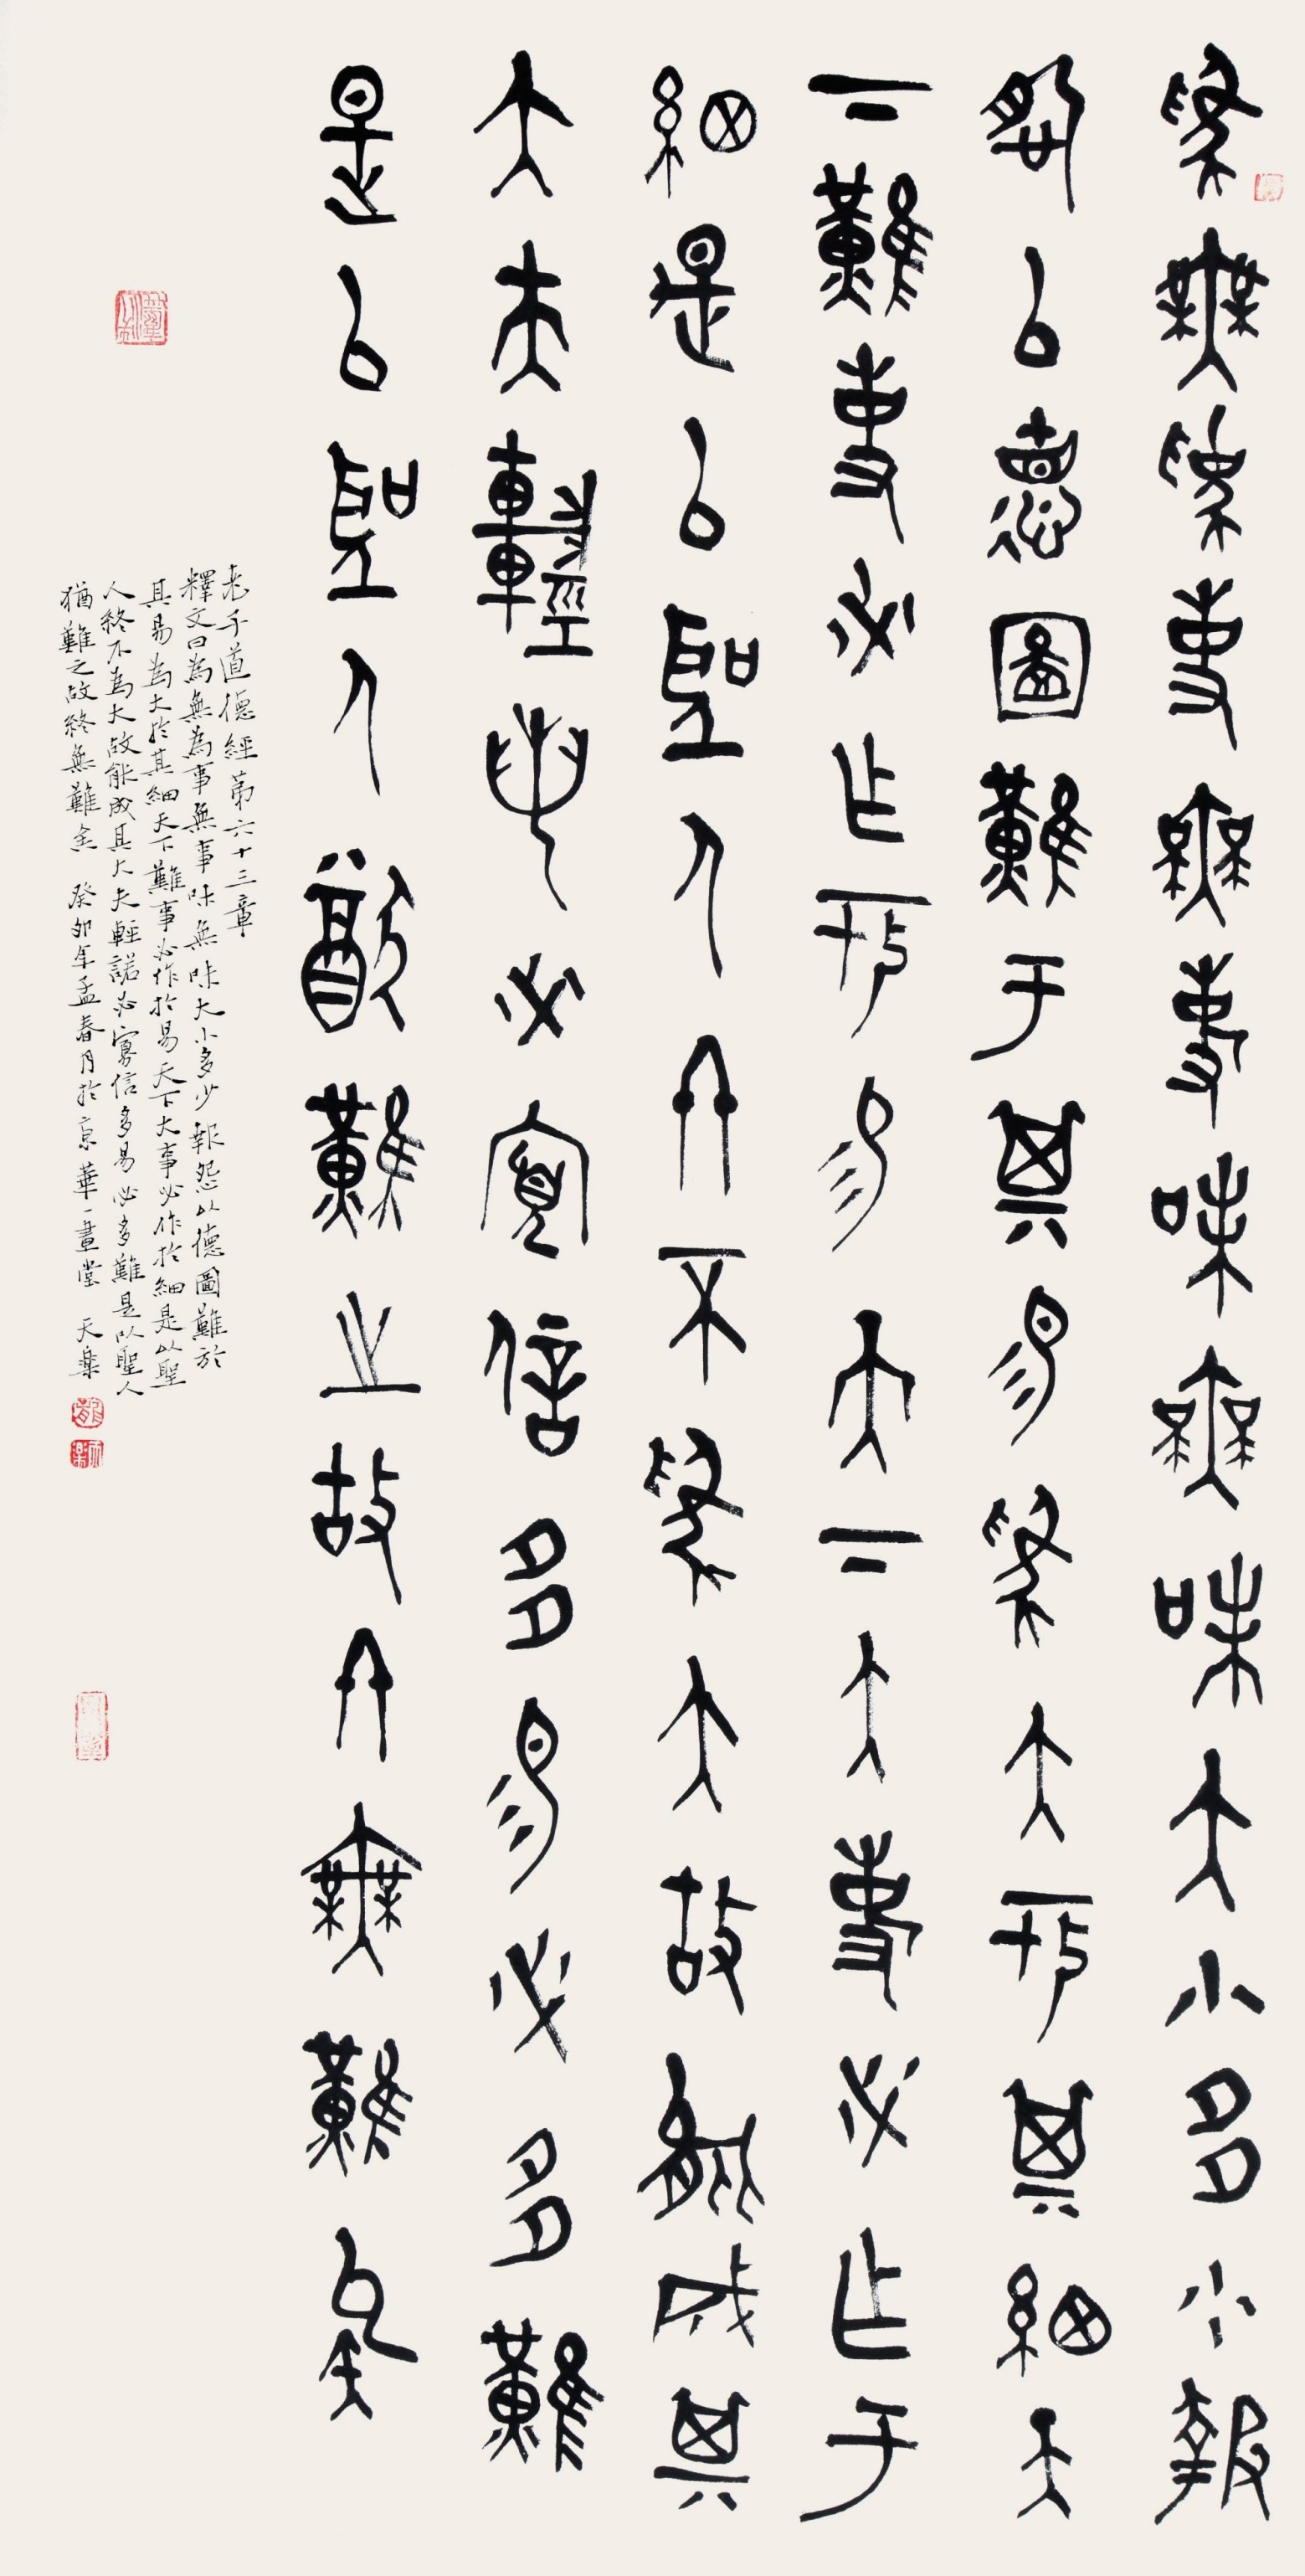 為無為事無事味無味大小多少報
怨以德圖難于其易為大於其細天
下難事必作於易天下大事必作于
細是以聖人終不為大故能成其
大夫輕諾必寡信多易必多難
是以聖人猶難之故終無難矣
老子道德經第六十三章
釋文曰為無為事無事味無味大小多少報怨以德圖難於
其易為大於其細天下難事必作於易天下大事必作於細是以聖
人終不為大故能成其大夫輕諾必寡信多易必多難是以聖人
猶難之故終無難矣 癸卯年孟春月於京華一畫堂 天樂